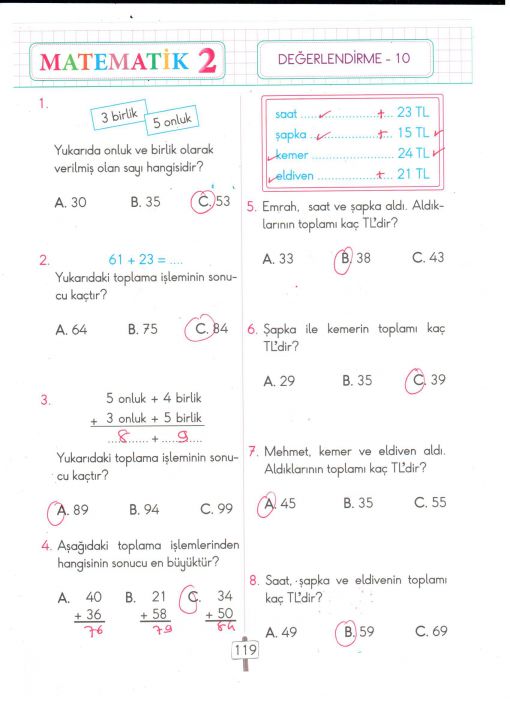 MATEMATİK 2
DEĞERLENDİRME - 10
1.
3 birlik
5 onluk
Yukarıda onluk ve birlik olarak
verilmiş olan sayı hangisidir?
A. 30 B. 35 C. 53
2. 61 + 23 = ....
Yukarıdaki toplama işleminin sonu-
cu kaçtır?
A. 64 B. 75 C. 84
3. 5 onluk + 4 birlik
+ 3 onluk + 5 birlik
....8...... + ....9....
Yukarıdaki toplama işleminin sonu-
cu kaçtır?
A. 89 B. 94 C. 99
4. Aşağıdaki toplama işlemlerinden
hangisinin sonucu en büyüktür?
A. 40 B. 21 C. 34
+ 36 + 58 + 50
76 79 84
saat ..................+.. 23 TL
şapka ..................+.. 15 TL
kemer ...................... 24 TL
eldiven ..................+.. 21 TL
5. Emrah, saat ve şapka aldı. Aldık-
larının toplamı kaç TL'dir?
A. 33 B. 38 C. 43
6. Şapka ile kemerin toplamı kaç
TL'dir?
A. 29 B. 35 C. 39
7. Mehmet, kemer ve eldiven aldı.
Aldıklarının toplamı kaç TL'dir?
A. 45 B. 35 C. 55
8. Saat, şapka ve eldivenin toplamı
kaç TL'dir?
A. 49 B. 59 C. 69
119